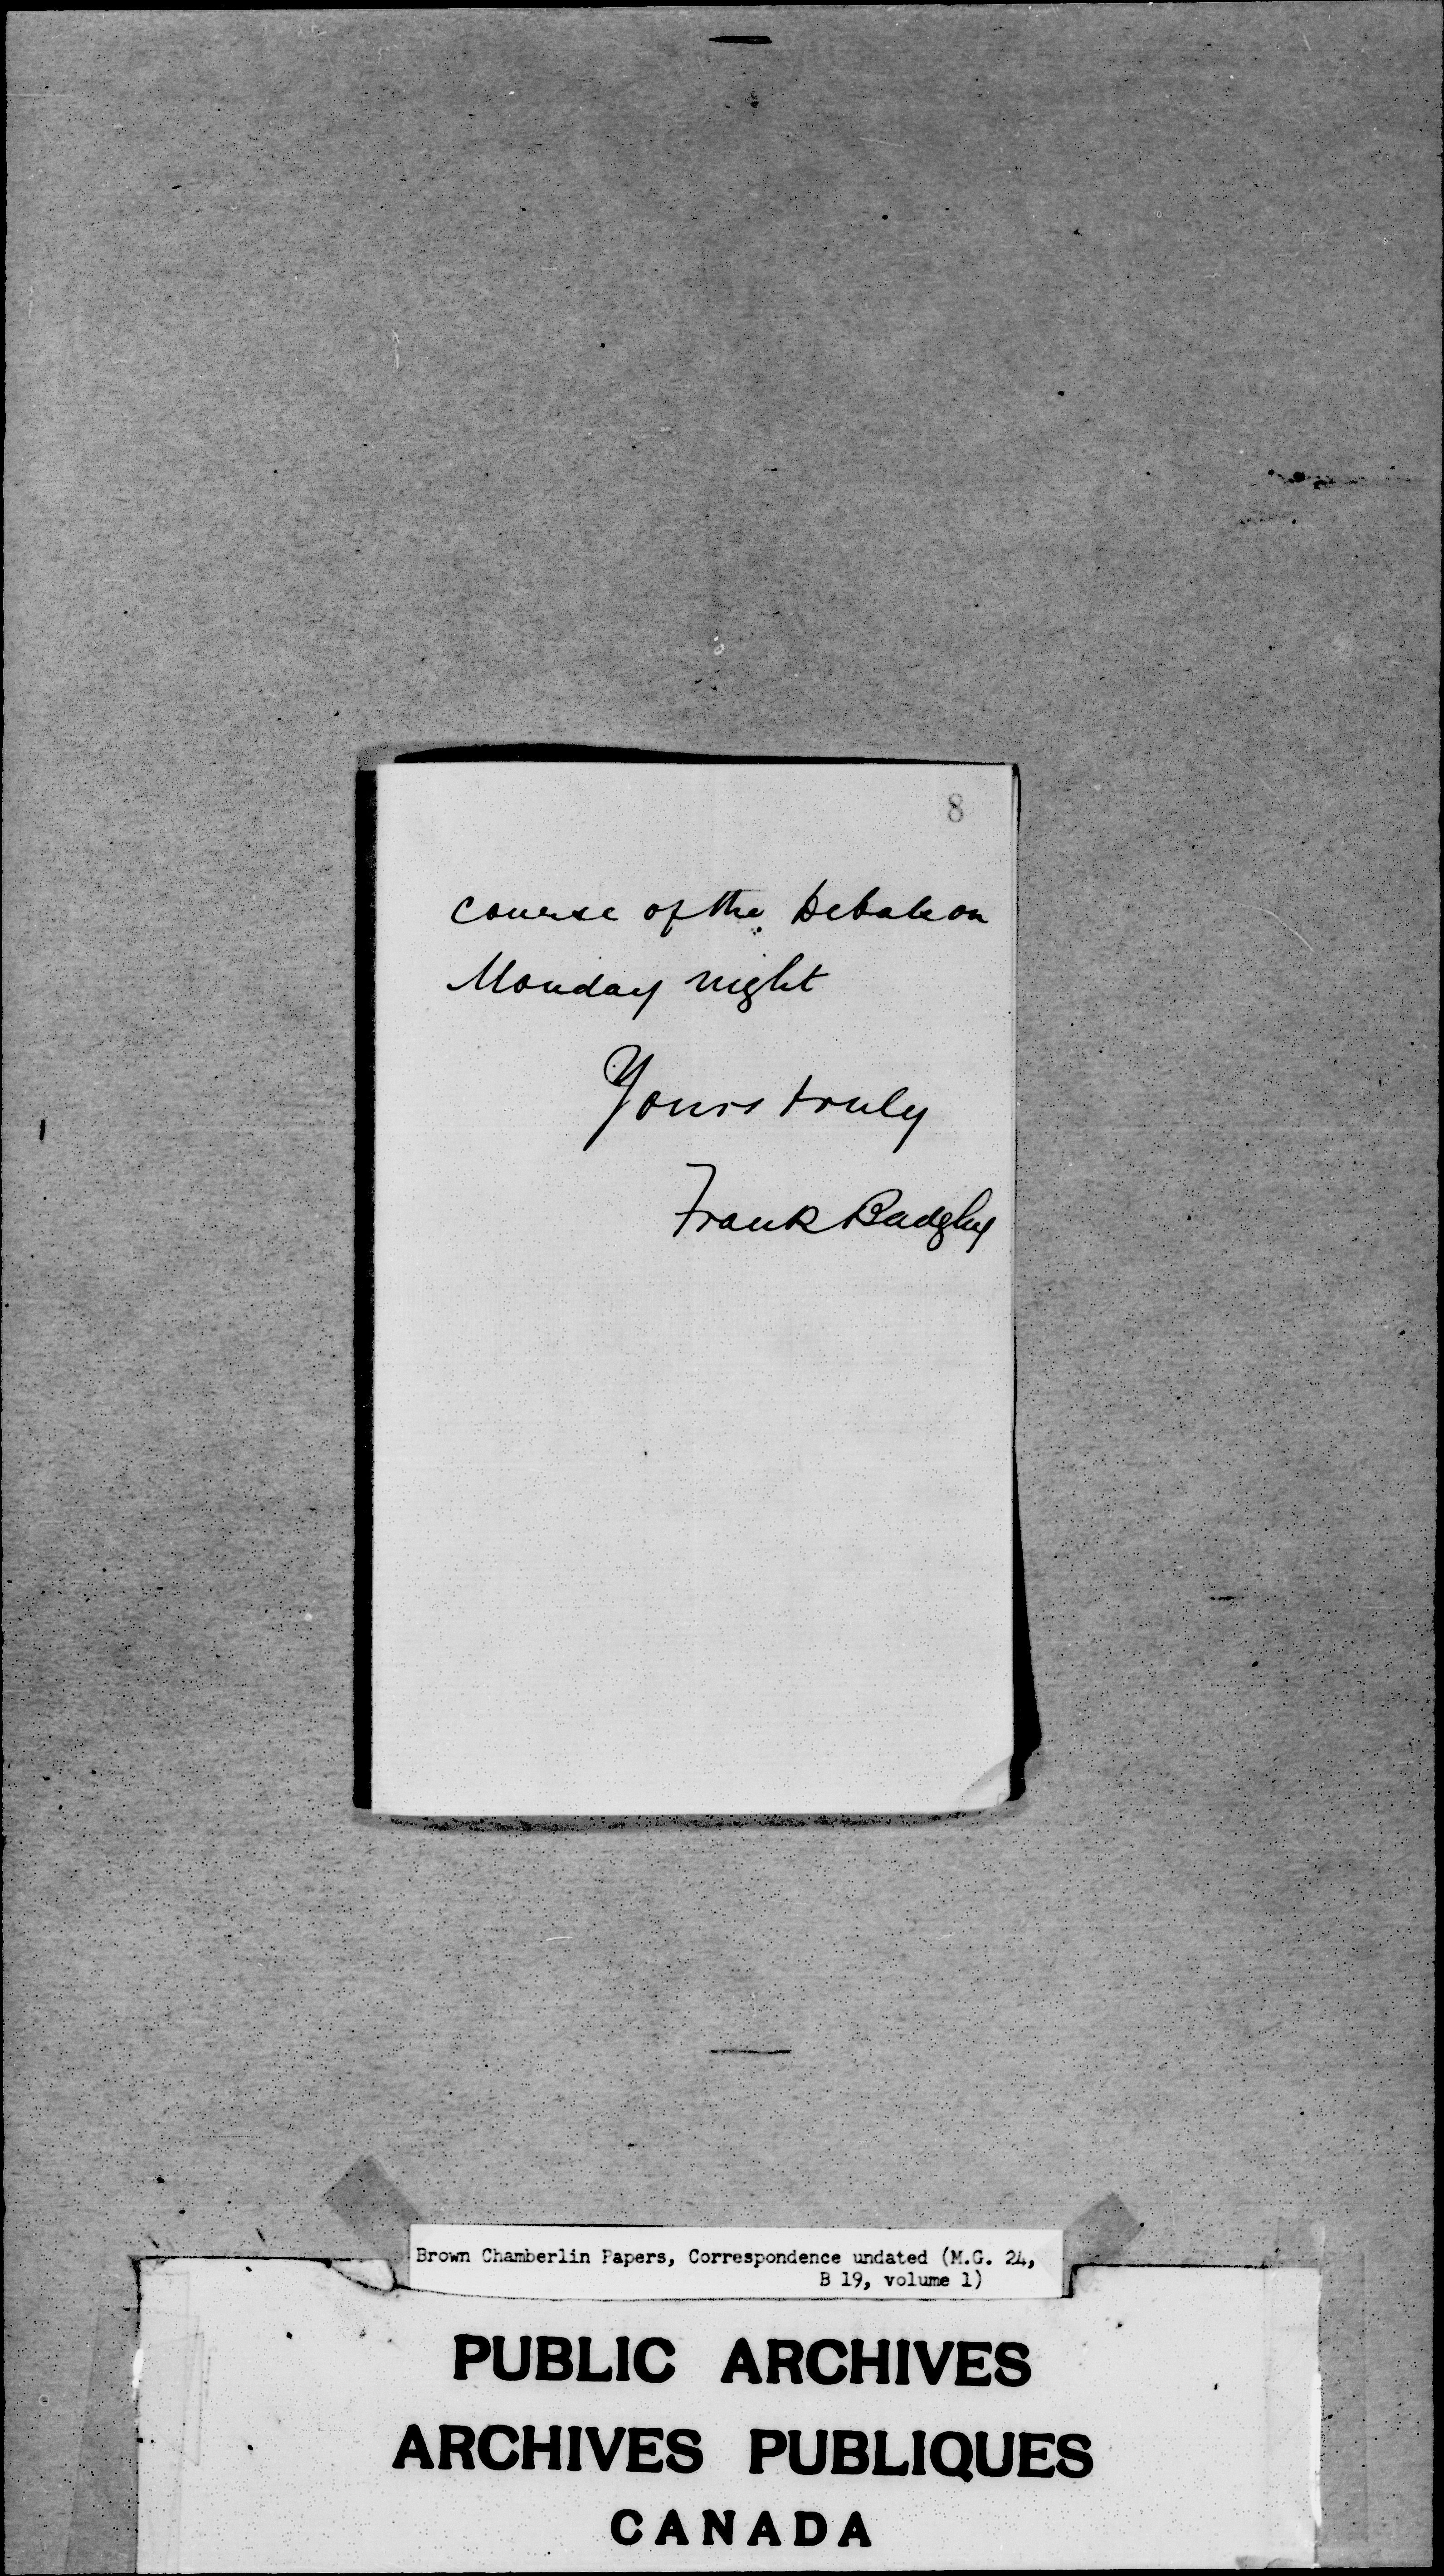 8
course of the Debate on
Monday night
Yours truly
Frank Badgley
Brown Chamberlin Papers, Correspondence undated (M.G. 24,
B 19, volume 1)
PUBLIC ARCHIVES
ARCHIVES PUBLIQUES
CANADA